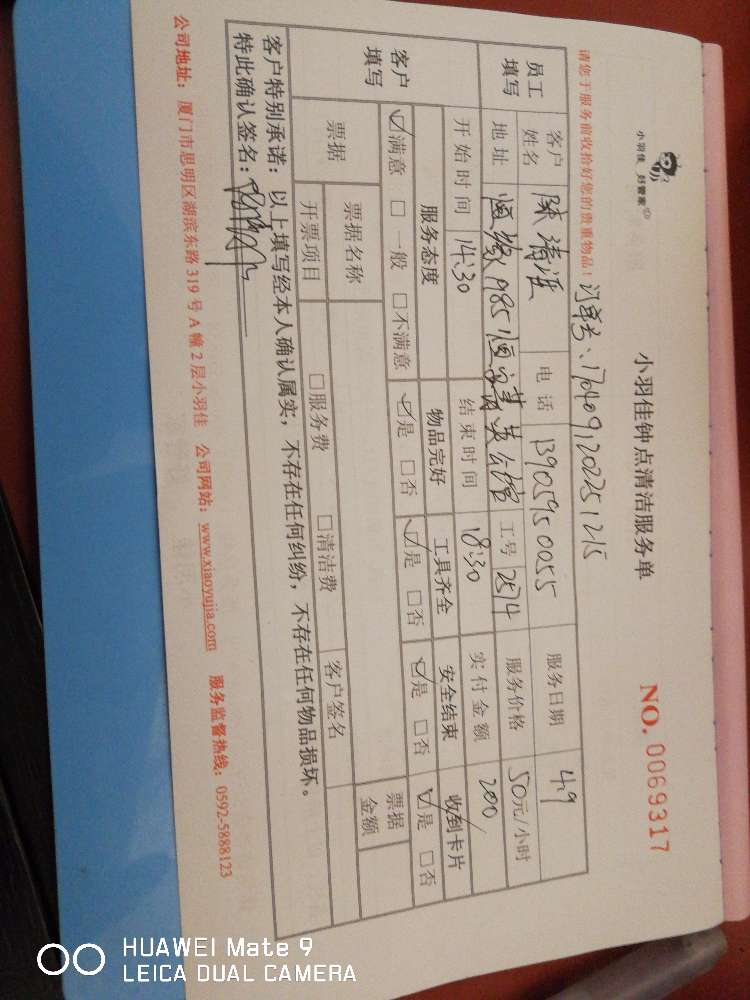 小羽佳 好管家
小羽佳钟点清洁服务单
NO. 0069317
请您于服务前收拾好您的贵重物品！订单号：1704091202251215
员工填写 客户姓名 陈清 电话 13905950055 服务日期 4.9
地址 恒 985 恒 菁英公馆 工号 2514 服务价格 50元/小时
开始时间 14:30 结束时间 18:30 实付金额 200
客户填写 服务态度 物品完好 工具齐全 安全结束 收到卡片
☑满意 □一般 □不满意 ☑是 □否 ☑是 □否 ☑是 □否 ☑是 □否
票据 票据名称 票据金额
开票项目 □服务费 □清洁费 客户签名
客户特别承诺：以上填写经本人确认属实，不存在任何纠纷，不存在任何物品损坏。
特此确认签名：
公司地址：厦门市思明区湖滨东路 319 号 A 幢 2 层小羽佳 公司网站：www.xiaoyujia.com 服务监督热线：0592-5888123
HUAWEI Mate 9
LEICA DUAL CAMERA